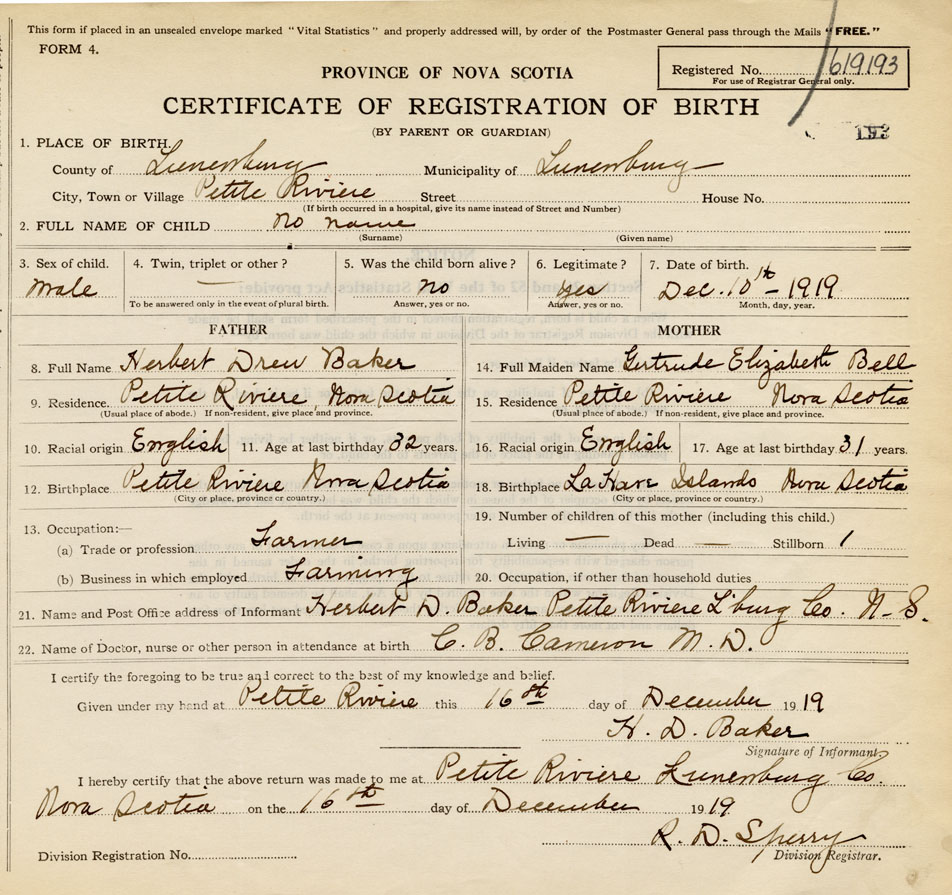 This form if placed in an unsealed envelope marked "Vital Statistics" and properly addressed will, by order of the Postmaster General pass through the Mails "FREE."
FORM 4.
Registered No. 619193
For use of Registrar General only.
PROVINCE OF NOVA SCOTIA
CERTIFICATE OF REGISTRATION OF BIRTH
(BY PARENT OR GUARDIAN)
193
1. PLACE OF BIRTH,
County of Lunenburg Municipality of Lunenburg
City, Town or Village Petite Riviere Street House No.
(If birth occurred in a hospital, give its name instead of Street and Number)
2. FULL NAME OF CHILD No name
(Surname) (Given name)
3. Sex of child. 4. Twin, triplet or other? 5. Was the child born alive? 6. Legitimate? 7. Date of birth.
Male — No Yes Dec. 10th - 1919
To be answered only in the event of plural birth. Answer, yes or no. Answer, yes or no. Month, day, year.
FATHER MOTHER
8. Full Name Herbert Drew Baker 14. Full Maiden Name Gertrude Elizabeth Bell
9. Residence. Petite Riviere, Nova Scotia 15. Residence Petite Riviere Nova Scotia
(Usual place of abode.) If non-resident, give place and province. (Usual place of abode.) If non-resident, give place and province.
10. Racial origin English 11. Age at last birthday 32 years. 16. Racial origin English 17. Age at last birthday 31 years.
12. Birthplace Petite Riviere Nova Scotia 18. Birthplace LaHave Islands Nova Scotia
(City or place, province or country.) (City or place, province or country.)
13. Occupation:— 19. Number of children of this mother (including this child.)
(a) Trade or profession Farmer Living — Dead — Stillborn 1
(b) Business in which employed Farming 20. Occupation, if other than household duties
21. Name and Post Office address of Informant Herbert D. Baker Petite Riviere L'burg Co. N. S.
22. Name of Doctor, nurse or other person in attendance at birth C. B. Cameron M. D.
I certify the foregoing to be true and correct to the best of my knowledge and belief.
Given under my hand at Petite Riviere this 16th day of December 1919
H. D. Baker
Signature of Informant
I hereby certify that the above return was made to me at Petite Riviere Lunenburg Co.
Nova Scotia on the 16th day of December 1919
R. D. Sperry
Division Registration No. Division Registrar.